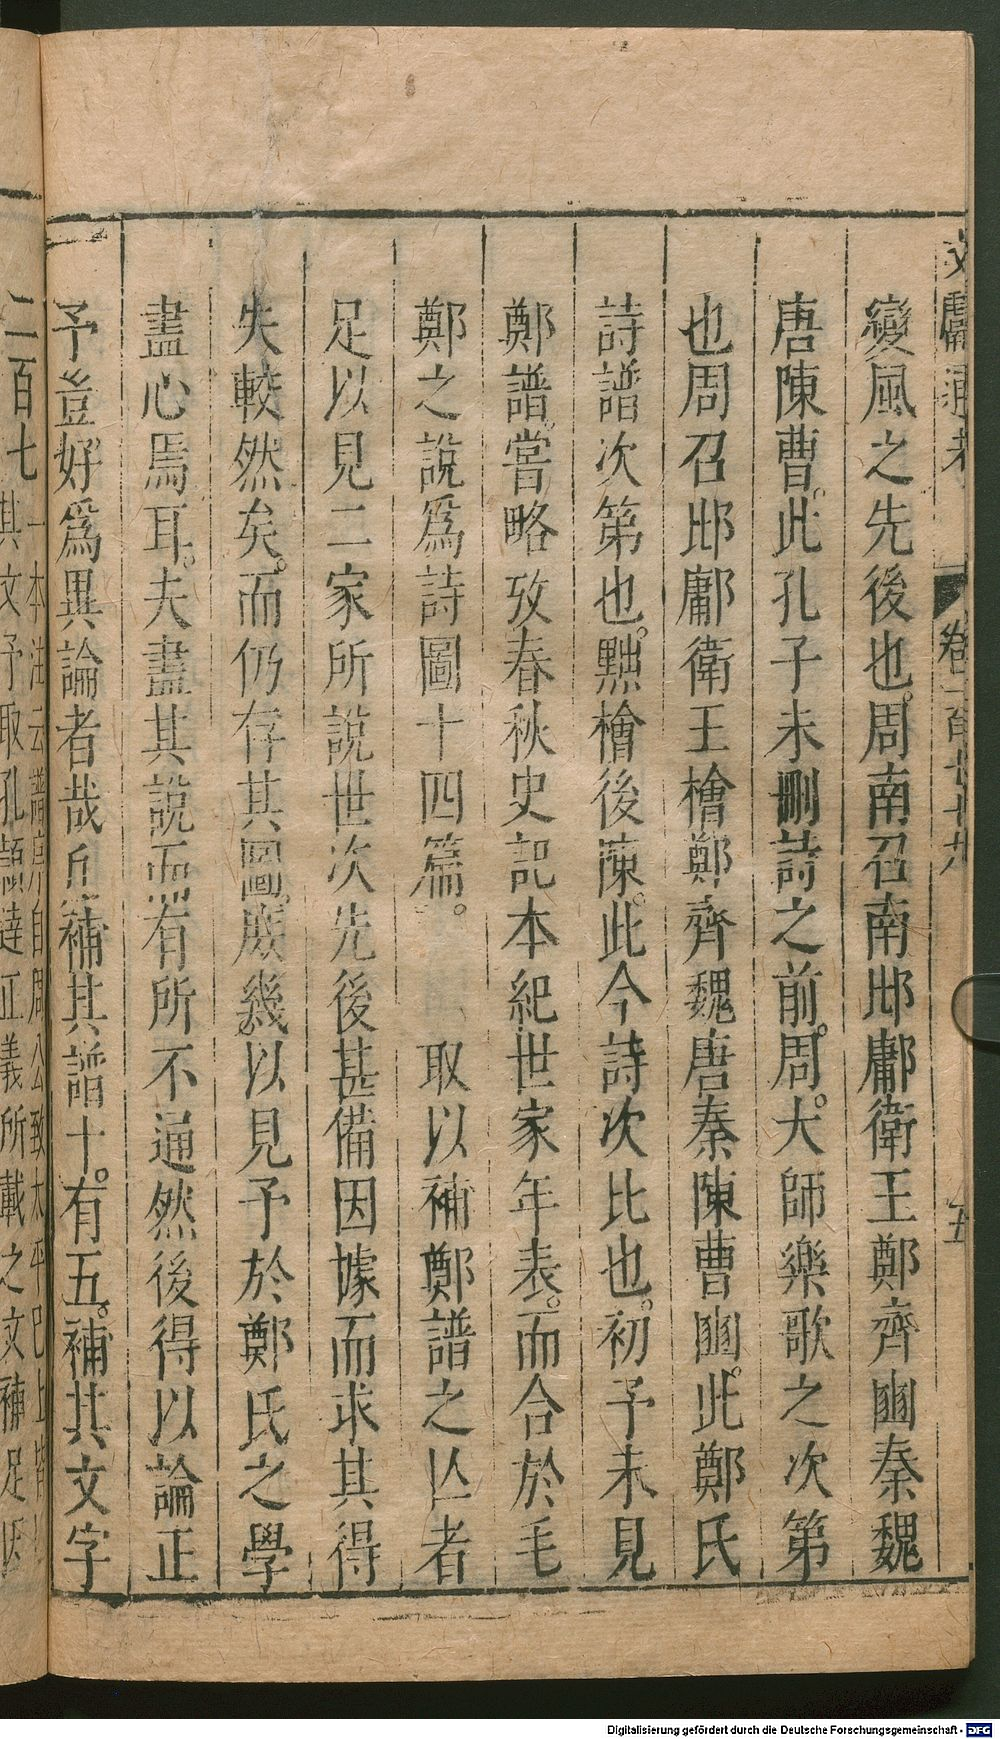 文獻通考 卷一百七十九 五
變風之先後也。周南召南邶鄘衛王鄭齊豳秦魏
唐陳曹。此孔子未刪詩之前。周大師樂歌之次第
也周召邶鄘衛王檜鄭齊魏唐秦陳曹豳。此鄭氏
詩譜次第也。黜檜後陳。此今詩次比也。初予未見
鄭譜。嘗略攷春秋史記本紀世家年表。而合於毛
鄭之說爲詩圖十四篇。 取以補鄭譜之亾者
足以見二家所說世次先後甚備因據而求其得
失較然矣。而仍存其圖。庶幾。以見予於鄭氏之學
盡心焉耳。夫盡其說而有所不通然後得以論正
予豈好爲異論者哉凡補其譜十。有五。補其文字
二百七 一本注云譜序自周公致太平已上皆
其文予取孔穎達正義所載之文補足因
Digitalisierung gefördert durch die Deutsche Forschungsgemeinschaft - DFG